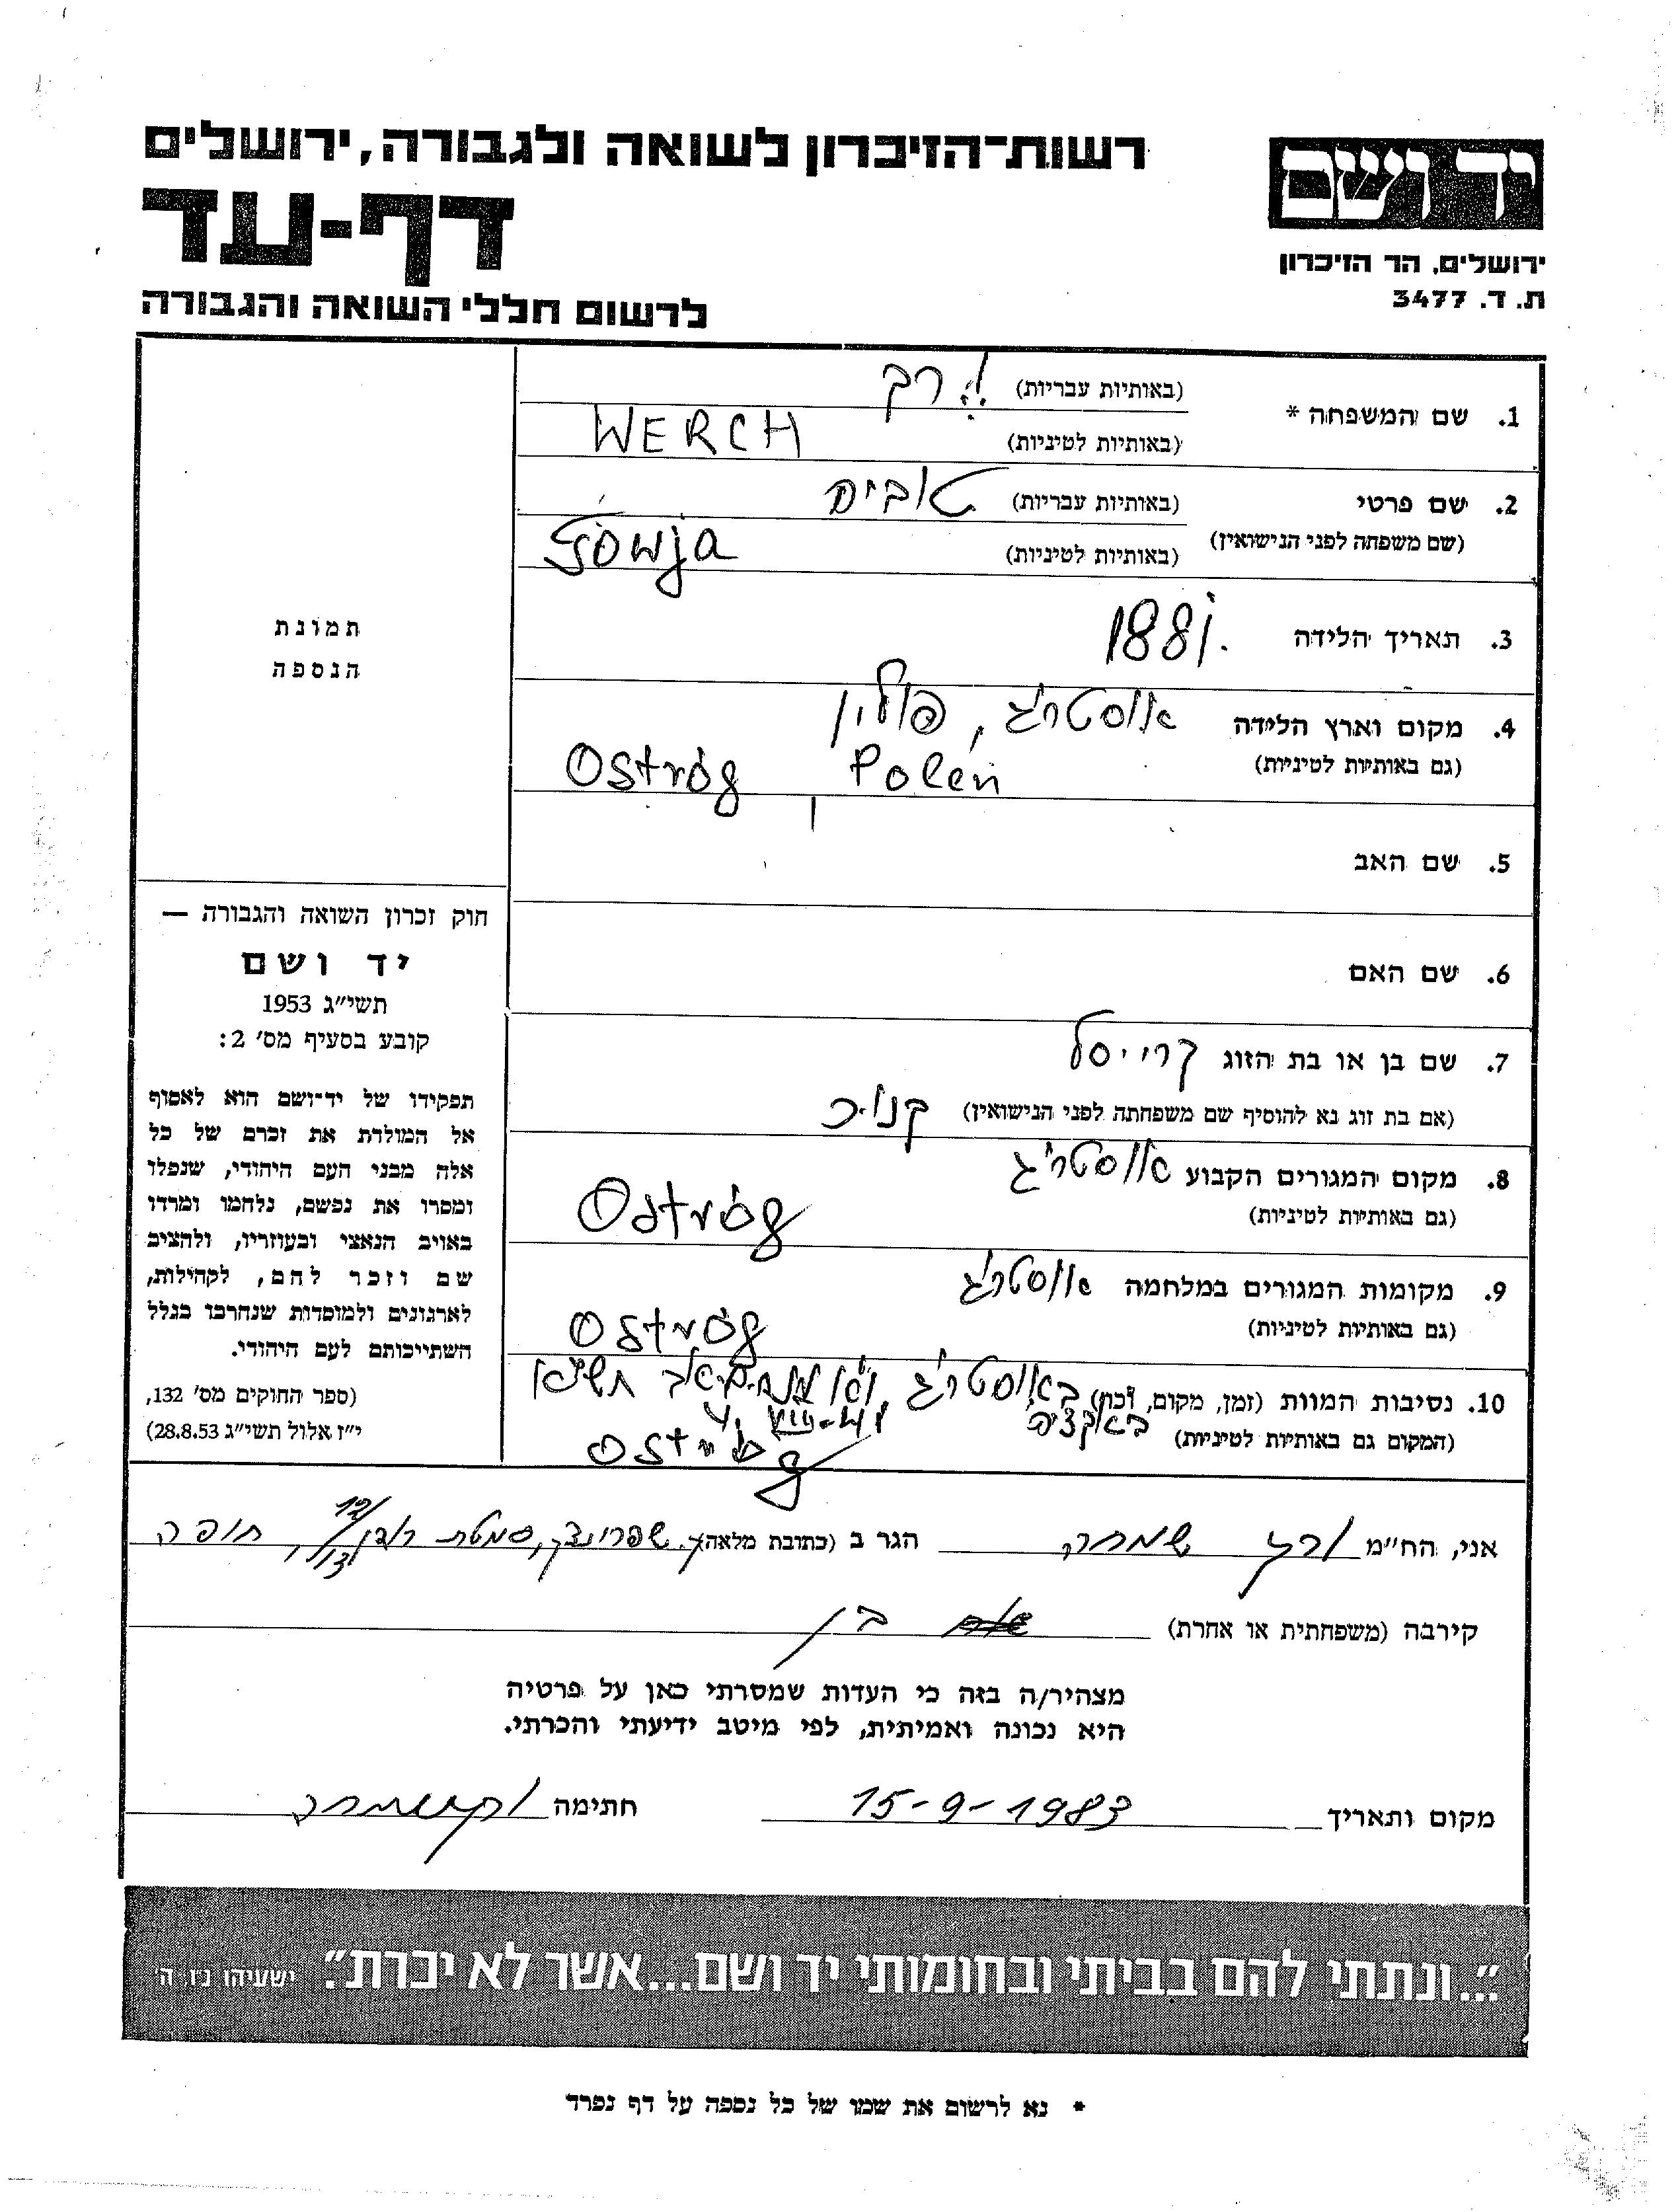 רשות־הזיכרון לשואה ולגבורה, ירושלים
יד ושם
דף-עד
ירושלים, הר הזיכרון
ת. ד. 3477
לרשום חללי השואה והגבורה
1. שם המשפחה *
(באותיות עבריות)
(באותיות לטיניות) WERCH
2. שם פרטי
(באותיות עבריות)
(שם משפחה לפני הנישואין)
(באותיות לטיניות)
3. תאריך הלידה 1881.
4. מקום וארץ הלידה פולין
(גם באותיות לטיניות) Polen Ostróg
5. שם האב
6. שם האם
7. שם בן או בת הזוג קרייסל
(אם בת זוג נא להוסיף שם משפחתה לפני הנישואין)
8. מקום המגורים הקבוע
(גם באותיות לטיניות) Ostróg
9. מקומות המגורים במלחמה
(גם באותיות לטיניות) Ostróg
10. נסיבות המוות (זמן, מקום, וכו')
באקציה
(המקום גם באותיות לטיניות) Ostróg
תמונת
הנספה
חוק זכרון השואה והגבורה —
יד ושם
תשי״ג 1953
קובע בסעיף מס׳ 2:
תפקידו של יד־ושם הוא לאסוף
אל המולדת את זכרם של כל
אלה מבני העם היהודי, שנפלו
ומסרו את נפשם, נלחמו ומרדו
באויב הנאצי ובעוזריו, ולהציב
שם וזכר להם, לקהילות,
לארגונים ולמוסדות שנחרבו בגלל
השתייכותם לעם היהודי.
(ספר החוקים מס׳ 132,
י״ז אלול תשי״ג 28.8.53)
אני, הח״מ ורך שמחה הגר ב (כתובת מלאה) חיפה
קירבה (משפחתית או אחרת) בן
מצהיר/ה בזה כי העדות שמסרתי כאן על פרטיה
היא נכונה ואמיתית, לפי מיטב ידיעתי והכרתי.
מקום ותאריך 15-9-1983 חתימה
״...ונתתי להם בביתי ובחומותי יד ושם...אשר לא יכרת״. ישעיהו נו, ה׳
* נא לרשום את שמו של כל נספה על דף נפרד